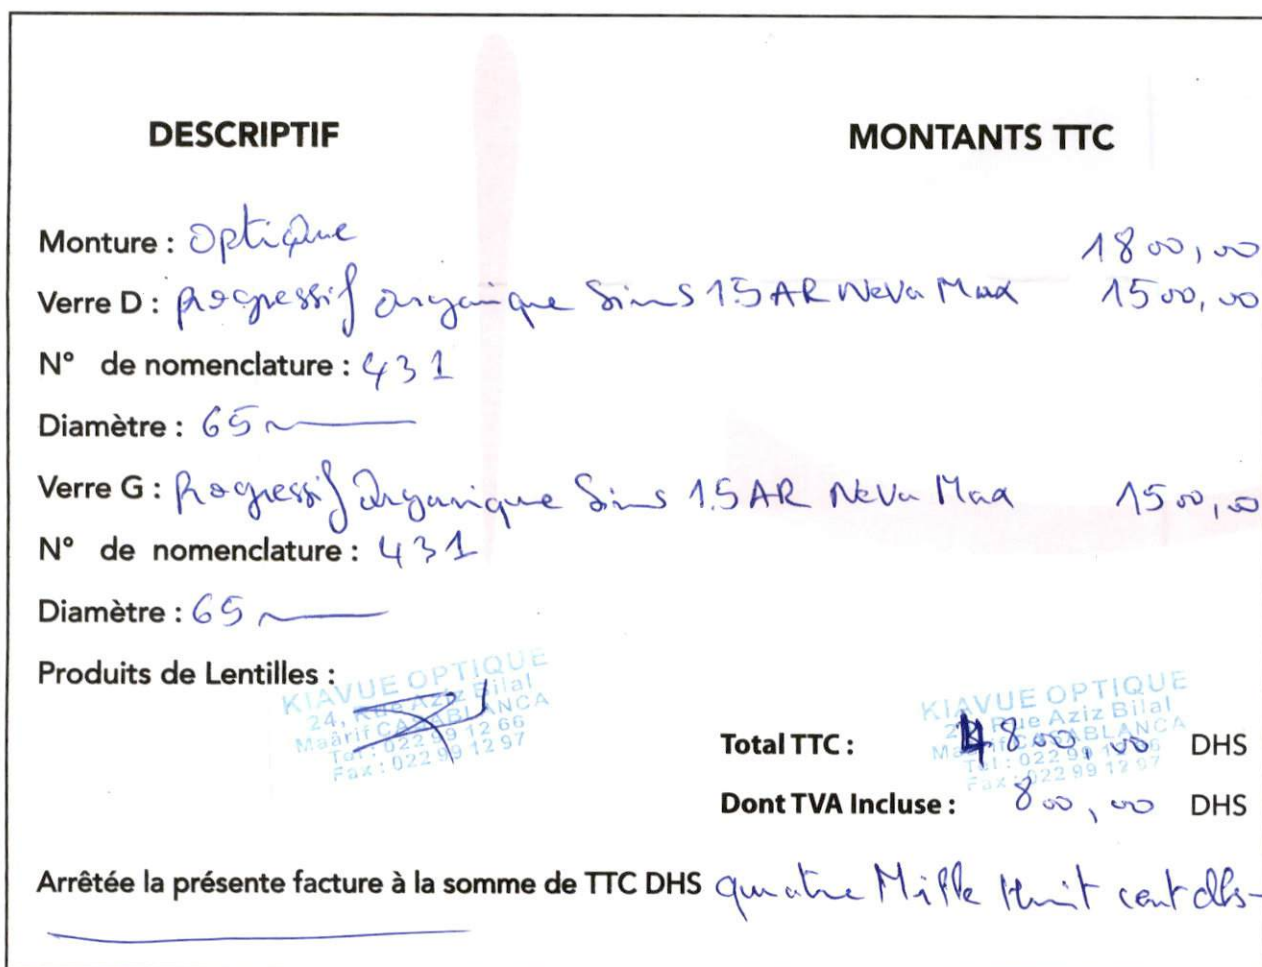 DESCRIPTIF MONTANTS TTC
Monture : Optique 1800,00
Verre D : Progressif organique Sims 1.5 AR Neva Max 1500,00
N° de nomenclature : 431
Diamètre : 65
Verre G : Progressif Organique Sims 1.5 AR Neva Max 1500,00
N° de nomenclature : 431
Diamètre : 65
Produits de Lentilles :
KIAVUE OPTIQUE
24, Rue Aziz Bilal
Maârif CASABLANCA
Tél : 022 99 12 66
Fax : 022 99 12 97
KIAVUE OPTIQUE
Rue Aziz Bilal
CASABLANCA
Tél : 022 99
Fax : 022 99 12 97
Total TTC : 4800,00 DHS
Dont TVA Incluse : 800,00 DHS
Arrêtée la présente facture à la somme de TTC DHS quatre Mille Huit cent dhs-